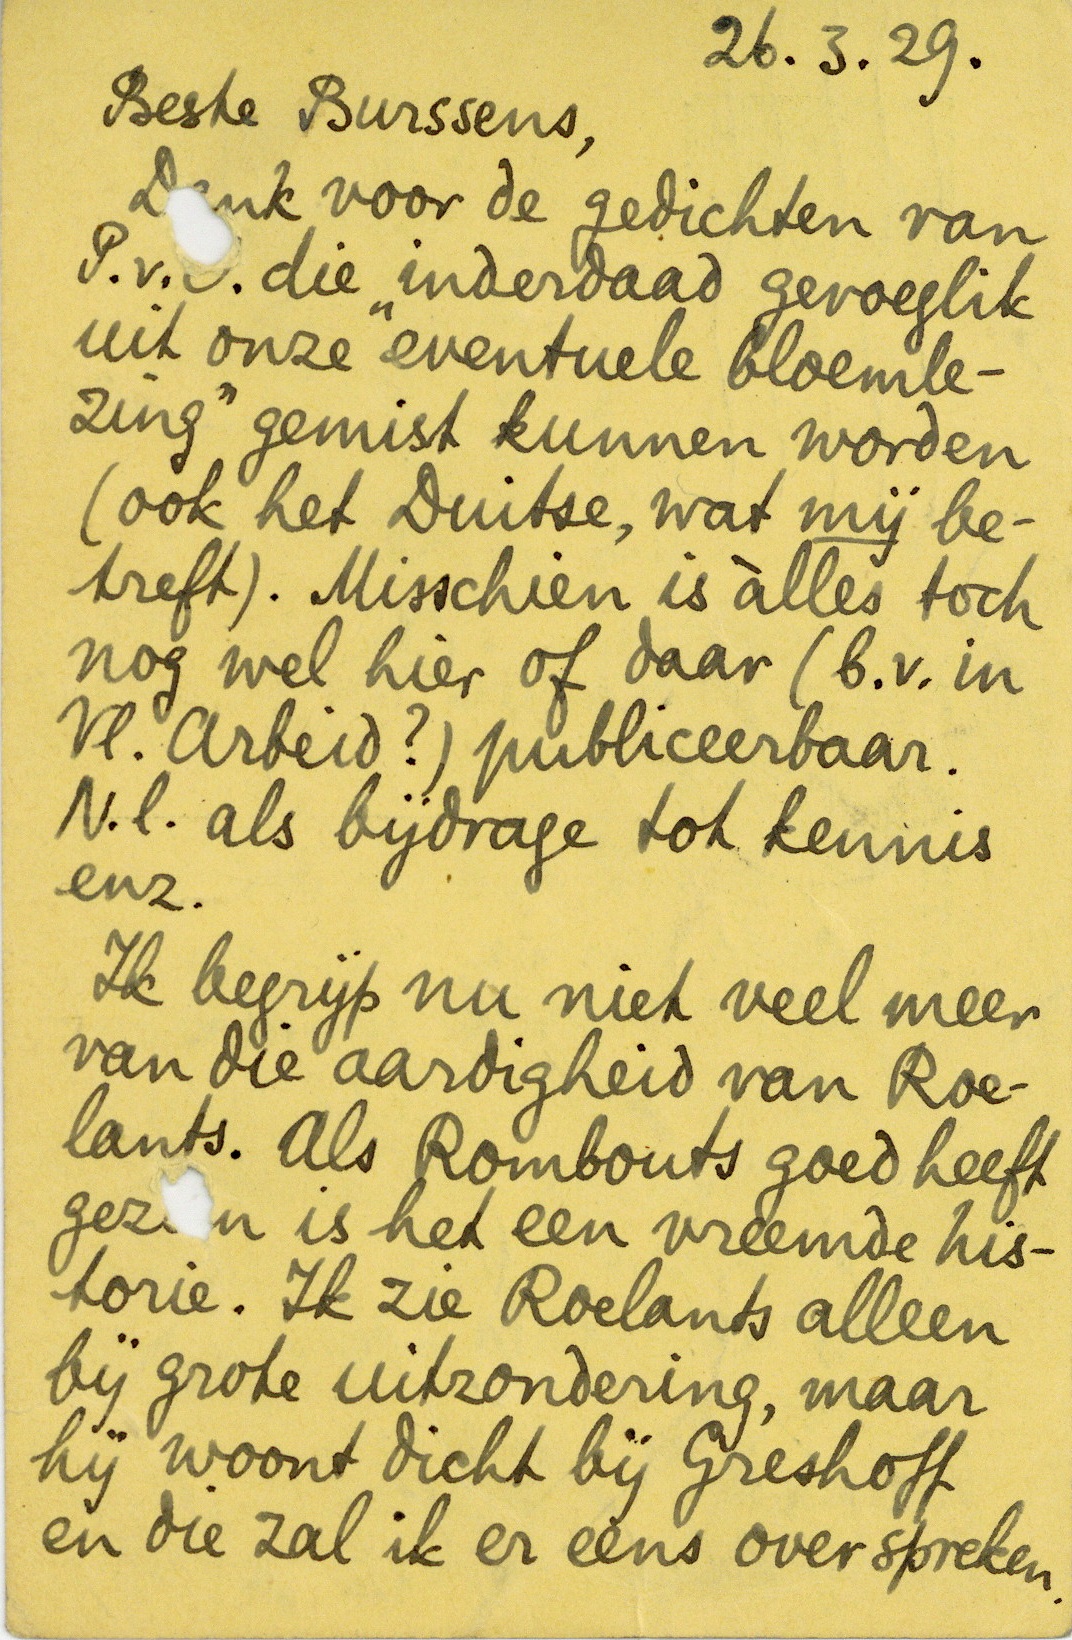 26.3.29.
Beste Burssens,
Dank voor de gedichten van
P.v.O. die inderdaad gevoeglik
uit onze "eventuele bloemle-
zing" gemist kunnen worden
(ook het Duitse, wat mij be-
treft). Misschien is àlles toch
nog wel hier of daar (b.v. in
Vl. Arbeid?) publiceerbaar.
N.l. als bijdrage tot kennis
enz.
Ik begrijp nu niet veel meer
van die aardigheid van Roe-
lants. Als Rombouts goed heeft
gezien is het een vreemde his-
torie. Ik zie Roelants alleen
bij grote uitzondering, maar
hij woont dicht bij Greshoff
en die zal ik er eens over spreken.